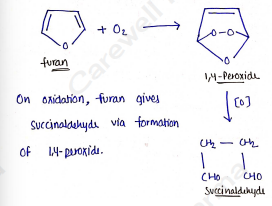 + O₂
O
O-O
O
furan
1,4-Peroxide
On oxidation, furan gives
succinaldehyde via formation
of 1,4-peroxide.
[O]
CH₂ — CH₂
CHO CHO
Succinaldehyde